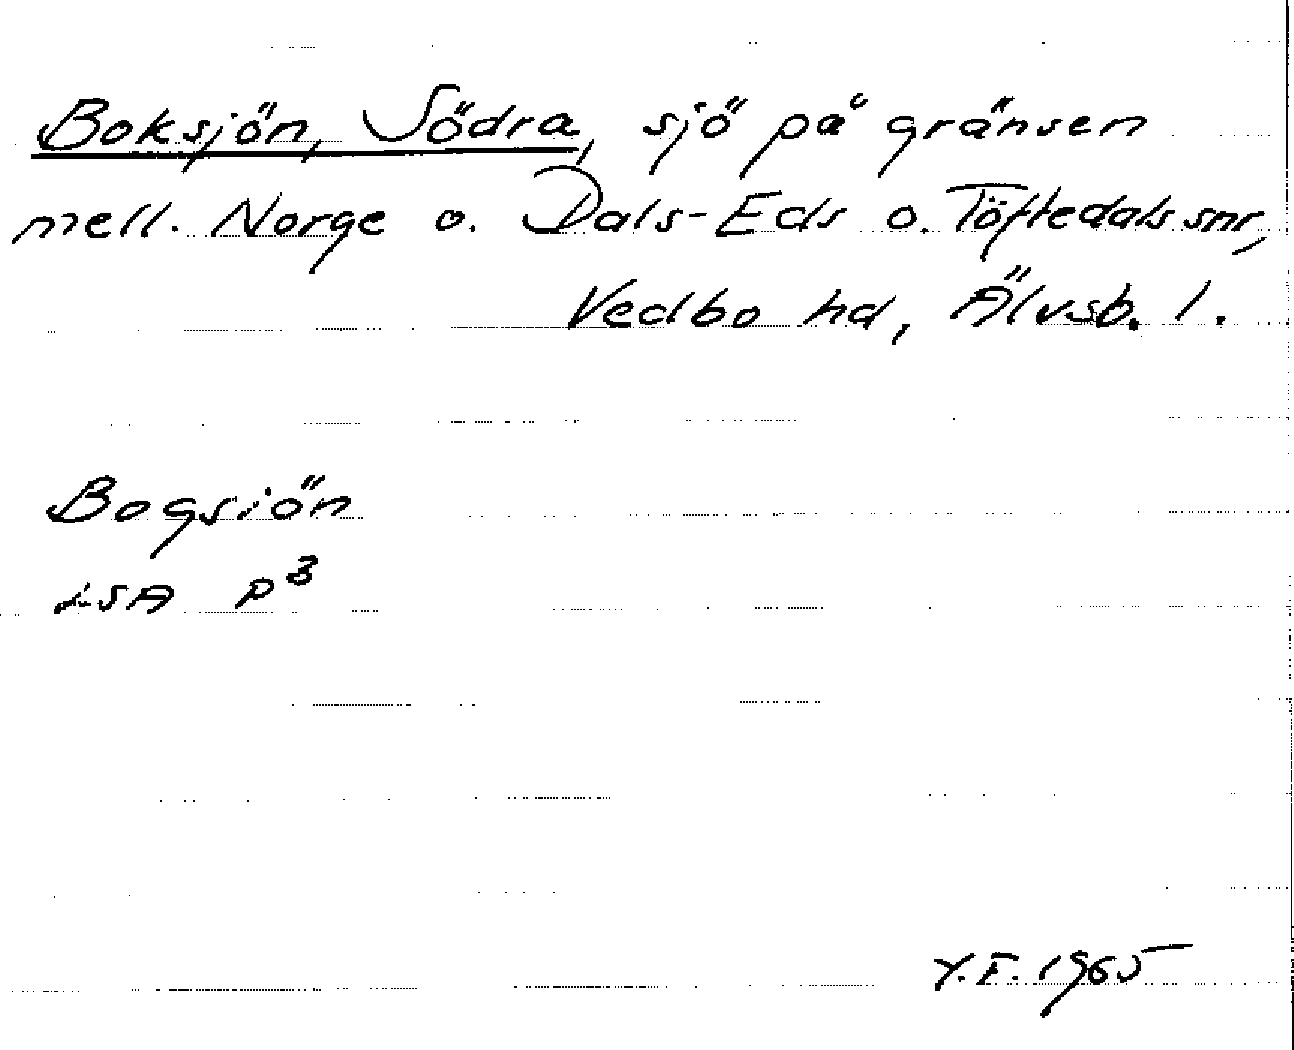 Boksjön, Södra, sjö på gränsen
mell. Norge o. Dals-Eds o. Töftedals snr,
Vedbo hd, Älvsb. l.
Bogsiön
LSA P³
Y.F. 1965